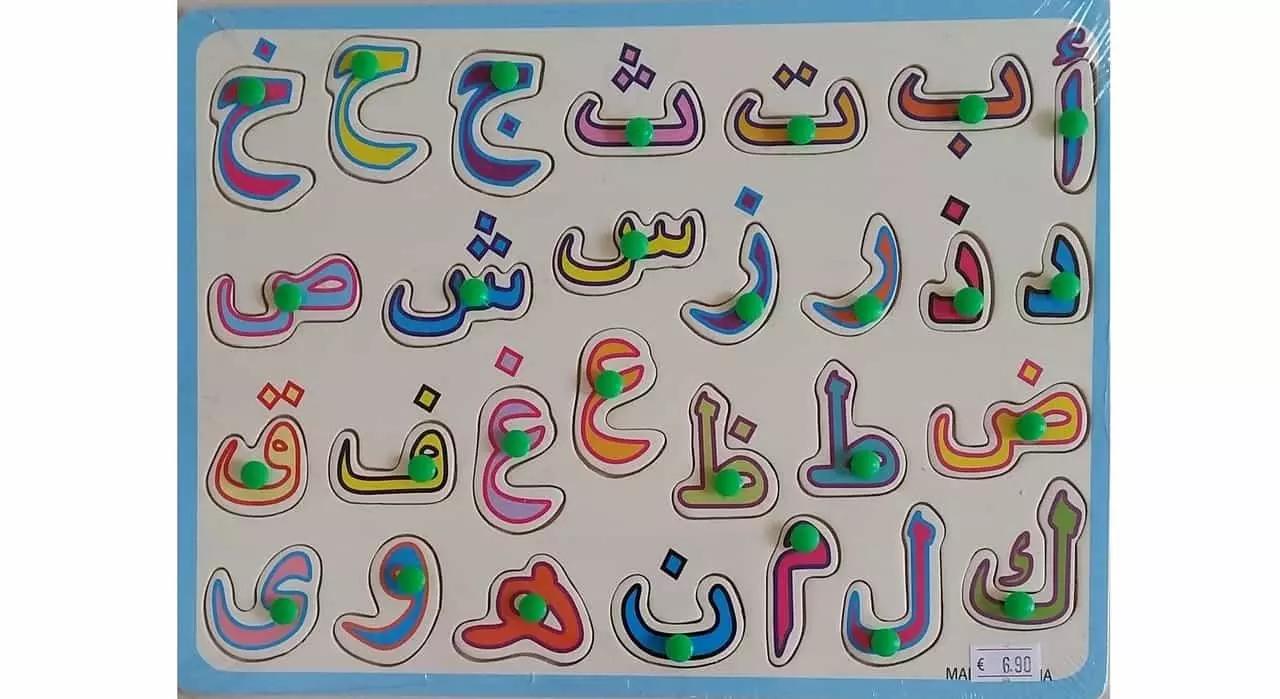 أ ب ت ث ج ح خ
د ذ ر ز س ش ص
ض ط ظ ع غ ف ق
ك ل م ن هـ و ى
€ 6.90